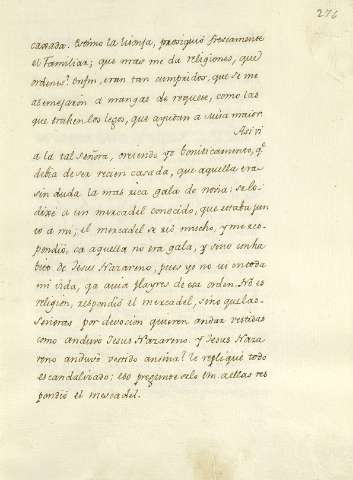 276
casada. Estimo la lisonja, prosiguió frescamente
el Familiar; que mas me da religiones, que
ordenes? Enfin, eran tan cumpridos, que se me
asemejaron a mangas de roquete, como las
que trahen los legos, que ayudan a misa maior
Asi vi
a la tal Señora, creiendo yo boniticamente, q.e
debia de ser recien casada, que aquella era
sin duda la mas rica gala de novia; se lo
dixe a un mercadel conocido, que estaba jun
to a mi; el mercadel se rió mucho, y me res-
pondió, ca aquella no era gala, y sino un ha
bito de Jesus Nazareno, pues yo no vi en toda
mi vida, qa avia flayres de esa orden. No es
religion, respondió el mercadel, sino que las
Señoras por devocion quieren andar vestidas
como anduvo Jesus Nazareno. y Jesus Naza
reno anduvo vestido ansina? le repliqué todo
escandalizado; eso pregunteselo Vm. a ellas res
pondió el mercadel.